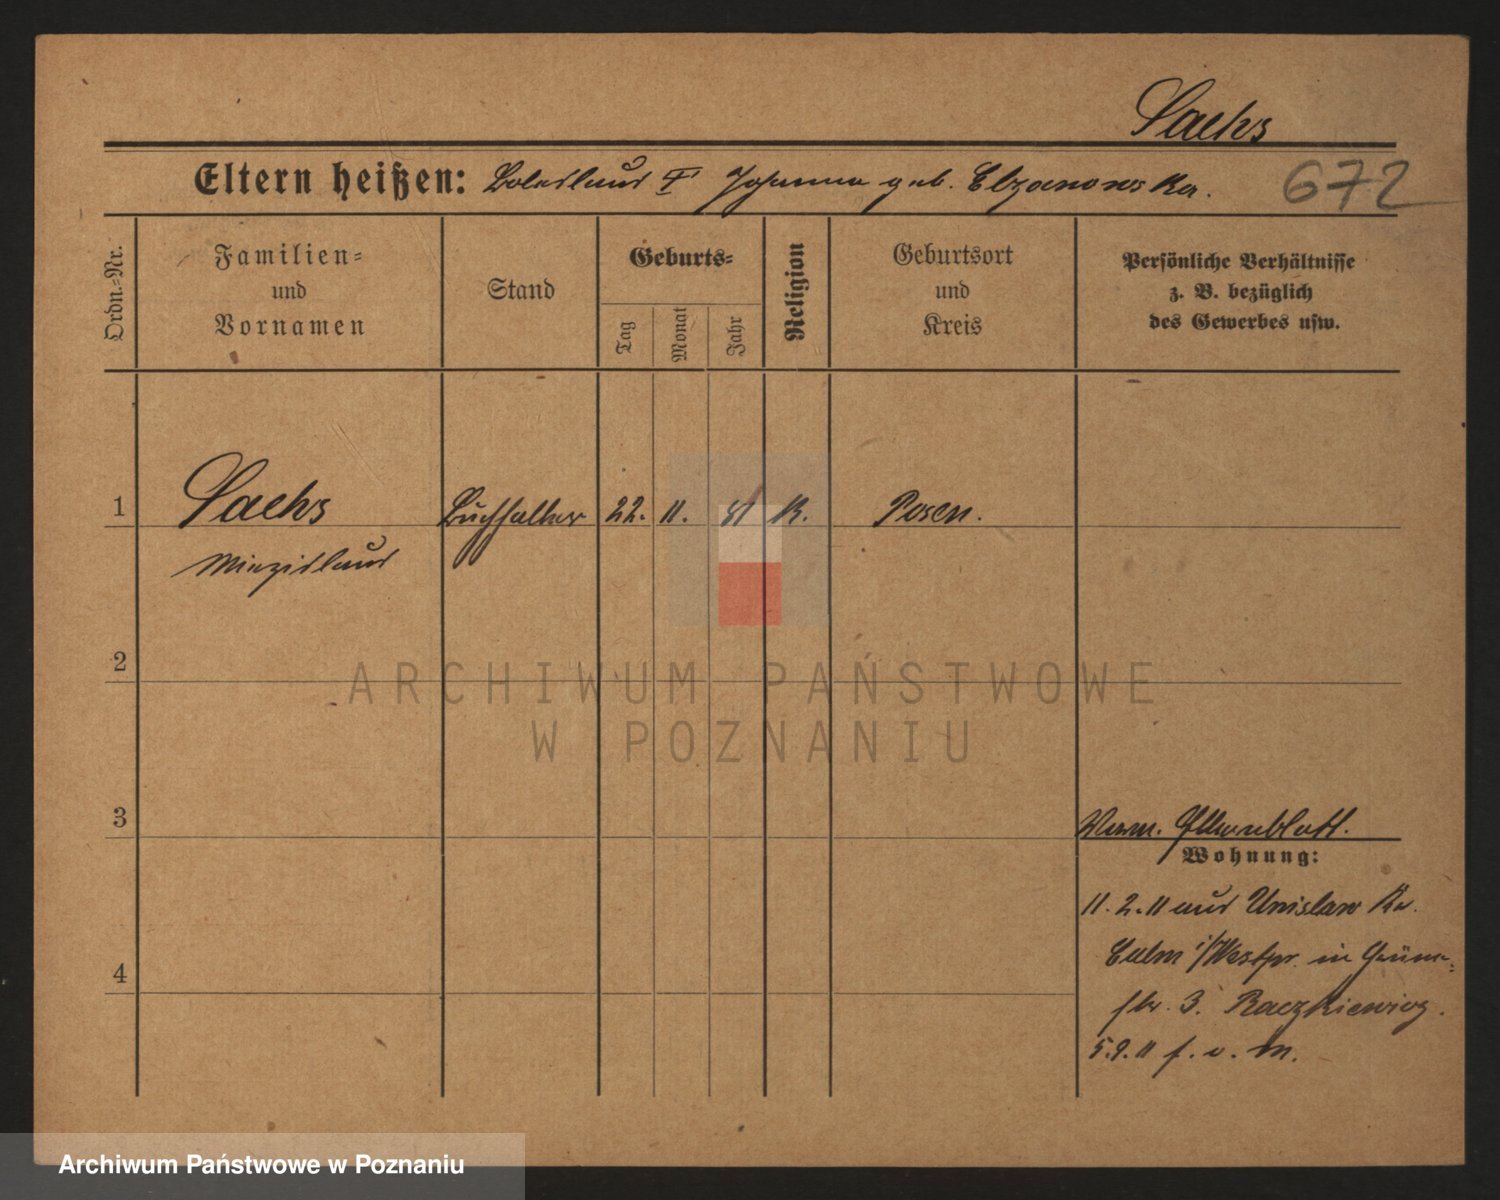 Sachs
Eltern heißen: Boleslaus † Johanna geb. Chzanowska.
672
Ordn.-Nr.
Familien-
und
Vornamen
Stand
Geburts-
Tag
Monat
Jahr
Religion
Geburtsort
und
Kreis
Persönliche Verhältnisse
z. B. bezüglich
des Gewerbes usw.
1
Sachs
Buchhalter
22.
11.
K.
Posen.
Miezislaus
2
ARCHIWUM PAŃSTWOWE
W POZNANIU
3
Verm. Elternblatt.
Wohnung:
11.2.11 aus Unislaw Kr.
Culm i/Westpr. in
str. 3. Raczkiewicz.
4
5.9.11 f. v. M.
Archiwum Państwowe w Poznaniu